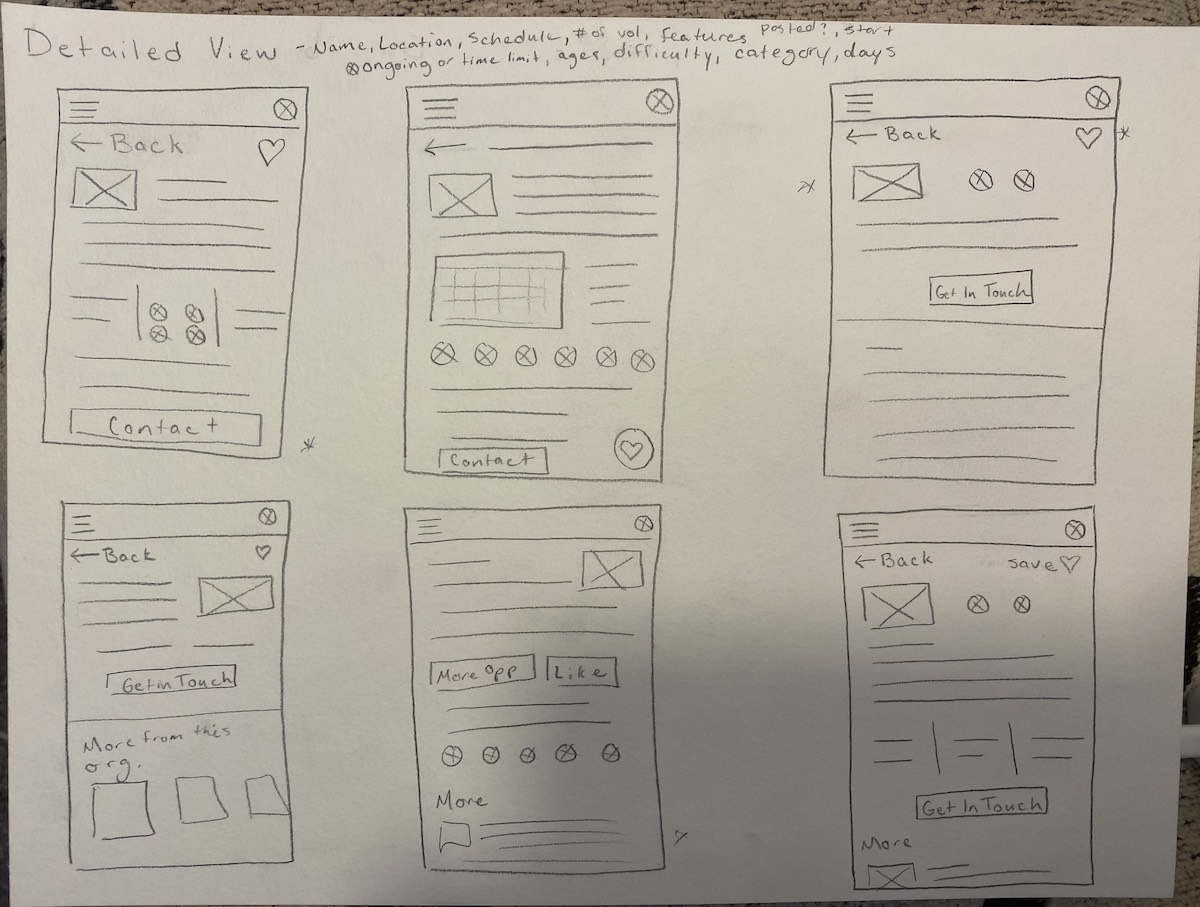 Detailed View - Name, Location, Schedule, # of vol, features posted?, start
ongoing or time limit, ages, difficulty, category, days
← Back
Contact
Contact
← Back
Get In Touch
← Back
Get in Touch
More from this
org.
More Opp
Like
More
← Back
save
Get In Touch
More